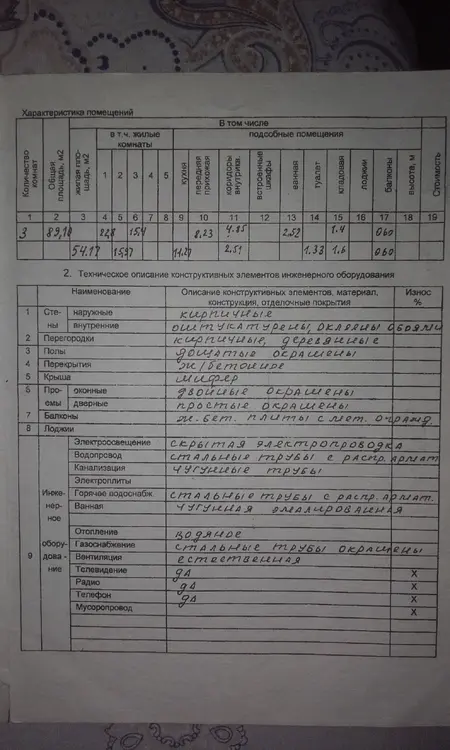 Характеристика помещений
В том числе
в т.ч. жилые комнаты
подсобные помещения
Количество комнат
Общая площадь, м2
жилая площадь, м2
1 2 3 4 5
кухня
передняя прихожая
коридоры внутрикв.
встроенные шкафы
ванная
туалет
кладовая
лоджии
балконы
высота, м
Стоимость
1 2 3 4 5 6 7 8 9 10 11 12 13 14 15 16 17 18 19
3 22,8 15,4 8.23 4.85 2.52 1.4 0.60
54.17 15,97 14.27 2.51 1.33 1.6 0.60
2. Техническое описание конструктивных элементов инженерного оборудования
Наименование Описание конструктивных элементов, материал, конструкция, отделочные покрытия Износ %
1 Стены наружные кирпичные
внутренние оштукатурены, оклеены обоями
2 Перегородки кирпичные, деревянные
3 Полы дощатые окрашены
4 Перекрытия ж/бетонные
5 Крыша шифер
6 Проёмы оконные двойные окрашены
дверные простые окрашены
7 Балконы ж.бет. плиты с мет. огражд.
8 Лоджии
9 Инженерное оборудование
Электроосвещение скрытая электропроводка
Водопровод стальные трубы с распр. армат
Канализация чугунные трубы
Электроплиты
Горячее водоснабж. стальные трубы с распр. армат.
Ванная чугунная эмалированная
Отопление водяное
Газоснабжение стальные трубы окрашены
Вентиляция естественная
Телевидение да X
Радио да X
Телефон да X
Мусоропровод X